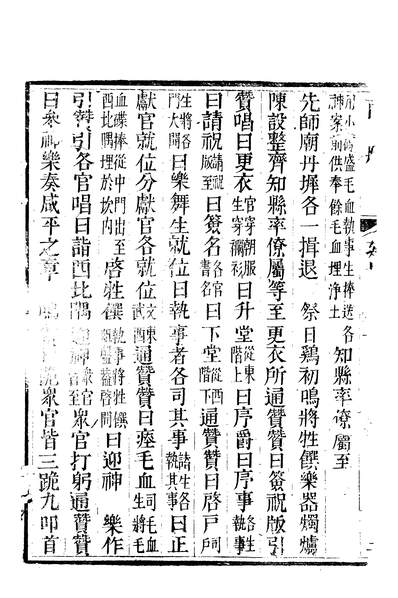 用小磁碗盛毛血執事生捧送各神案前供奉餘毛血埋淨土 知縣率僚屬至
先師廟丹墀各一揖退 祭日鷄初鳴將牲饌樂器燭爐
陳設整齊知縣率僚屬等至更衣所通贊贊曰簽祝版引
贊唱曰更衣官穿朝服生穿襴衫曰升堂從東階上曰序爵曰序事各生執事
曰請祝版請祝至曰簽名各官書名曰下堂從西階下通贊贊曰啓戶司
門大開生將各曰樂舞生就位曰執事者各司其事諸生各執其事曰正
獻官就位分獻官各就位文東武西通贊贊曰瘞毛血司毛血生將毛
血碟捧從中門出至西北隅埋於坎内啓牲饌執事將牲饌蓋啓開曰迎神 樂作
引贊引各官唱曰詣西北隅迎神衆官至衆官打躬通贊贊
曰參神樂奏咸平之章 衆官皆三跪九叩首